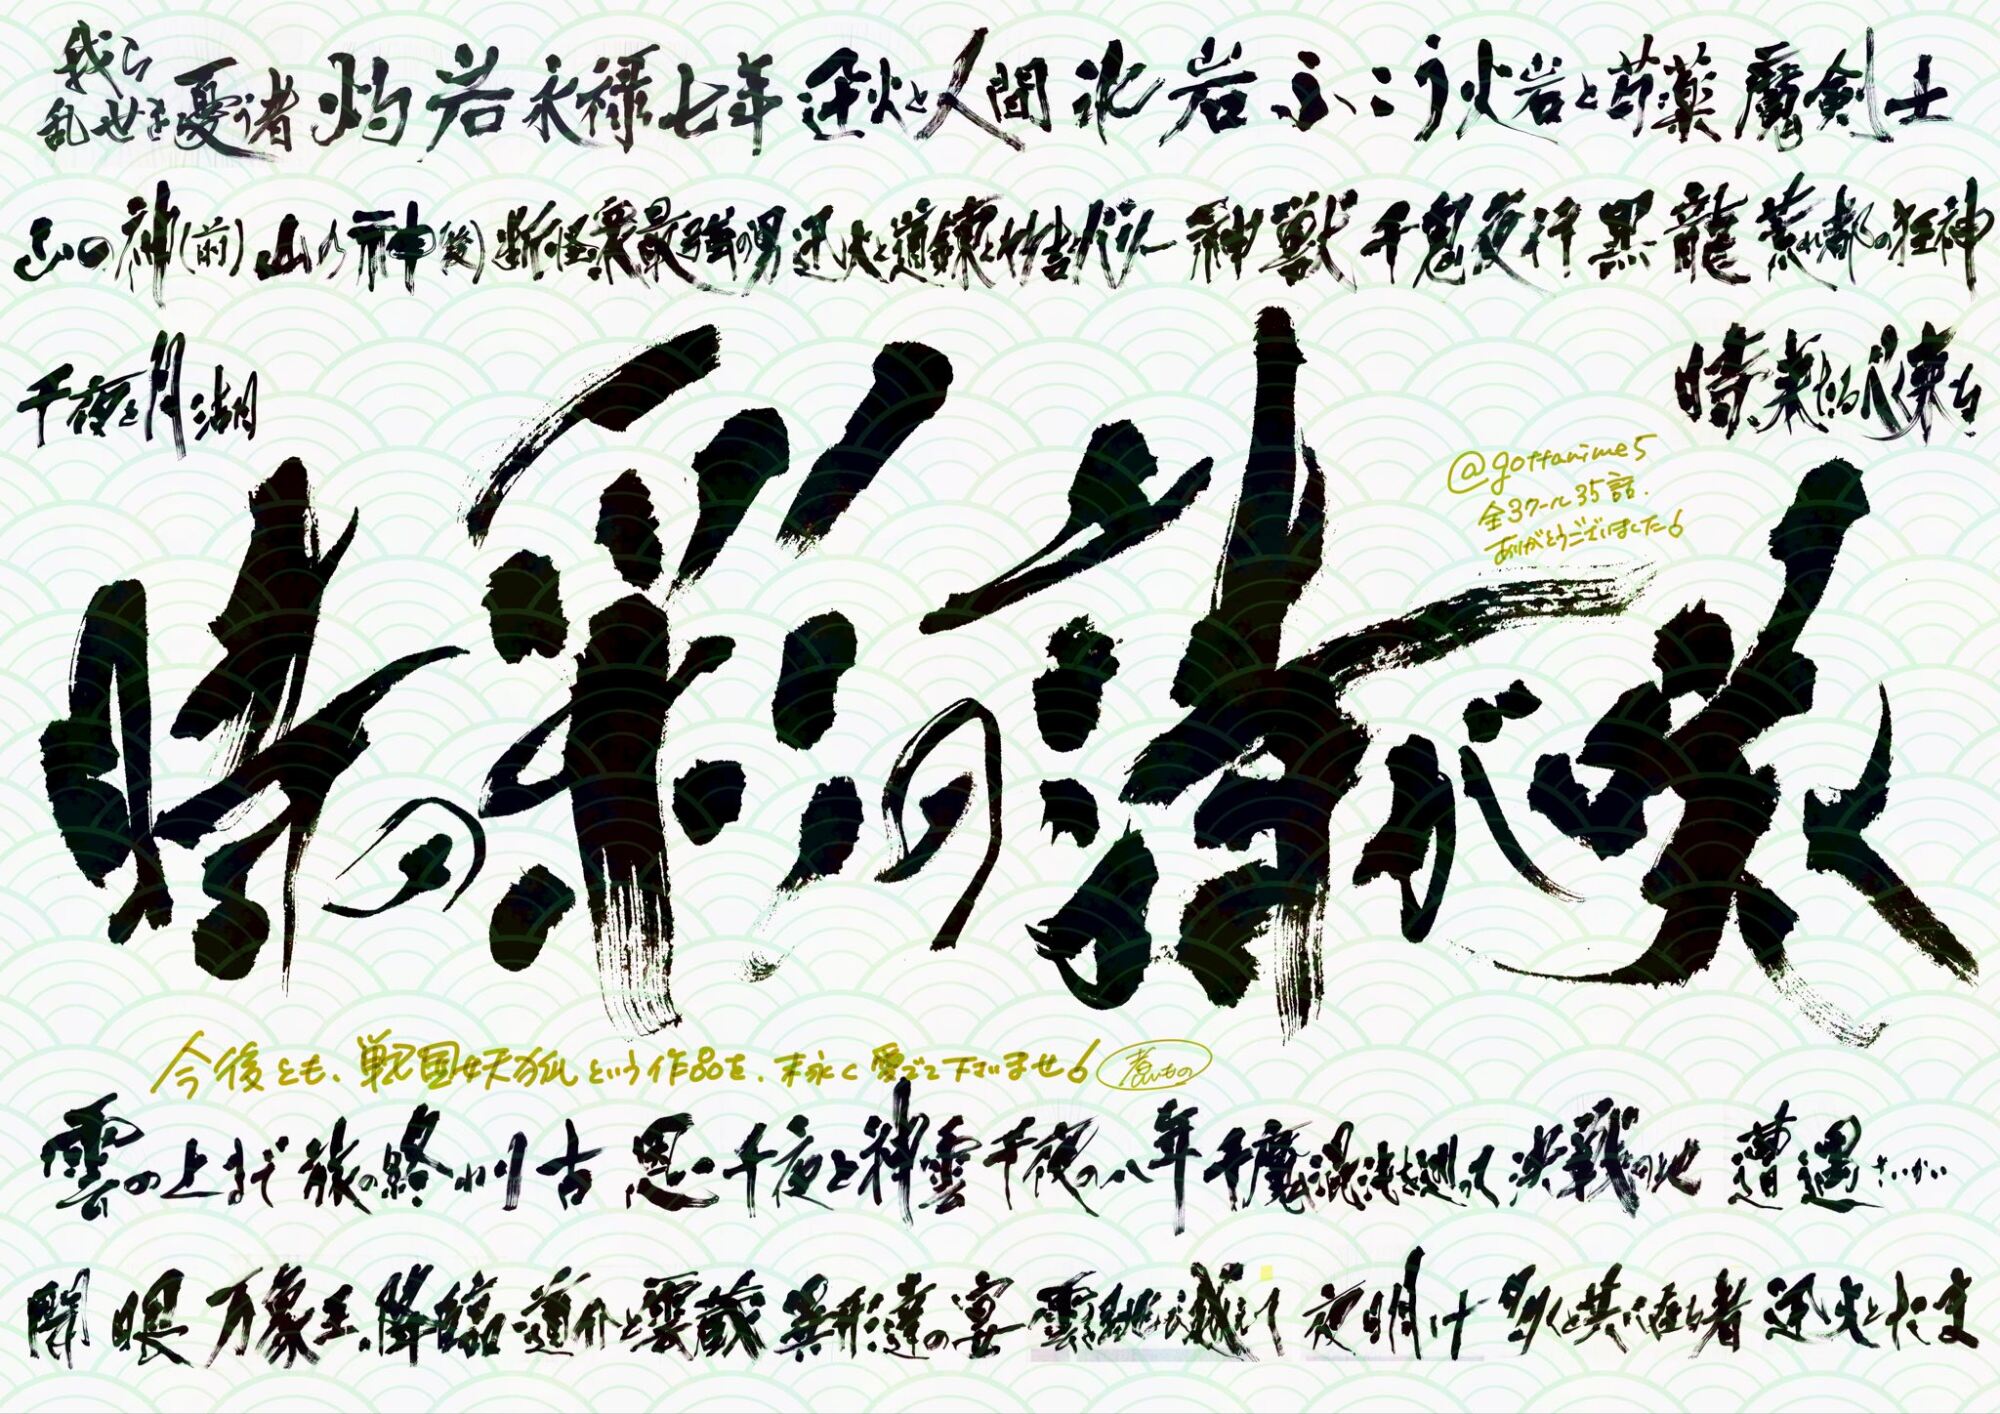 我ら乱世を憂う者 灼岩 永禄七年 迅火と人間 氷岩 ふこう 火岩と芍薬 魔剣士
山の神(前) 山の神(後) 断怪衆最強の男 迅火と道錬 神獣 千鬼夜行 黒龍 荒れ都の狂神
千夜と月湖
時、来たるべく来たり
@gottanime5
全3クール35話、
ありがとうございました!
時の彩の詩が咲く
今後とも、戦国妖狐という作品を、末永く愛でて下さいませ!
雲の上まで 旅の終わり 古 恩 千夜と神雲 千夜の八年 千魔混沌を巡って 決戦の地 遭遇 さいかい
開眼 万象王、降臨 道介と雲蔵 異形達の宴 雲を越えて 夜明け 多くと共に在る者 迅火とたま